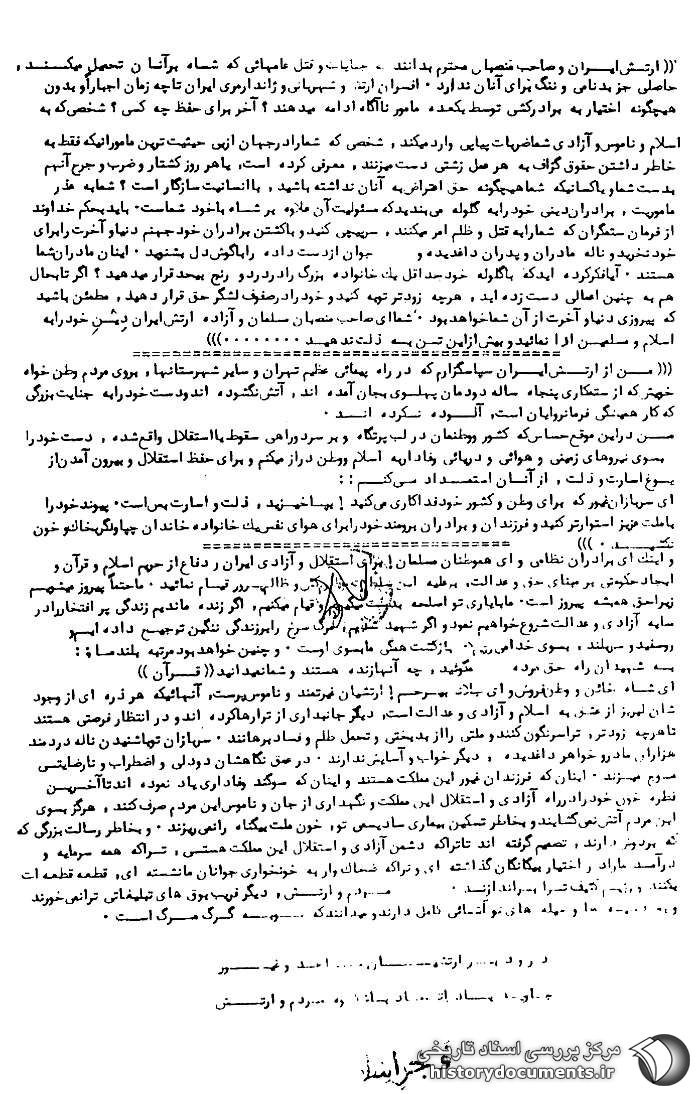 (( ارتش ایران و صاحب منصبان محترم بدانند جنایات و قتل عامهائی که شاه برآنان تحمیل میکند ,
حاصلی جز بدنامی و ننگ برای آنان ندارد ۰ افسران ارتش و شهربانی و ژاندارمری ایران تاچه زمان اجبارأو بدون
هیچگونه اختیار به برادرکشی توسط یکعده مامور ناآگاه ادامه میدهند ؟ آخر برای حفظ چه کسی ؟ شخصی که به
اسلام و ناموس و آزادی شما ضربات پیاپی وارد میکند , شخصی که شمارا درجهان ازبی حیثیت ترین مامورانیکه فقط به
خاطر داشتن حقوق گزاف به هر عمل زشتی دست میزنند , معرفی کرده است, یا هر روز کشتار و ضرب و جرح آنهم
بدست شما و یا کسانیکه شما هیچگونه حق اعتراض به آنان نداشته باشید , با انسانیت سازگار است ؟ شما به عذر
ماموریت , برادران دینی خودرا به گلوله می بندید که مسئولیت آن علاوه بر شاه با خود شماست۰ باید بحکم خداوند
از فرمان ستمگران که شمارا به قتل و ظلم امر میکنند , سرپیچی کنید و با کشتن برادران خود جهنم دنیا و آخرت رابرای
خود نخرید و ناله مادران و پدران داغدیده و جوان ازدست داده را با گوش دل بشنوید ۰ اینان مادران شما
هستند ۰ آیا فکر کرده اید که با گلوله خود حداقل یک خانواده بزرگ را در درد و رنج بیحد قرار میدهید ؟ اگر تابحال
هم به چنین اعمالی دست زده اید , هرچه زودتر توبه کنید و خود را درصفوف لشگر حق قرار دهید , مطمئن باشید
که پیروزی دنیا و آخرت از آن شما خواهد بود ۰ شما ای صاحب منصبان مسلمان و آزاده ارتش ایران دِیْنِ خودرا به
اسلام و مسلمین ادا نمائید و بیش ازاین تن به ذلت ندهید ۰۰۰۰۰۰۰۰ )))
=================================================
((( من از ارتش ایران سپاسگزارم که در راه پیمائی عظیم تهران و سایر شهرستانها , بروی مردم وطن خواه
خویش که از ستمکاری پنجاه ساله دودمان پهلوی بجان آمده اند , آتش نگشوده اند و دست خودرا به جنایت بزرگی
که کار همیشگی فرمانروایان است, آلوده نکرده اند ۰
من دراین موقع حساس که کشور و وطنمان در لب پرتگاه و بر سر دوراهی سقوط یا استقلال واقع شده , دست خودرا
بسوی نیروهای زمینی و هوائی و دریائی وفادار به اسلام و وطن دراز میکنم و برای حفظ استقلال و بیرون آمدن از
یوغ اسارت و ذلت , از آنان استمداد می کنم : :
ای سربازان غیور که برای وطن و کشور خود فداکاری می کنید ! بپاخیزید , ذلت و اسارت بس است۰ پیوند خود را
با ملت عزیز استوارتر کنید و فرزندان و برادران برومند خودرا برای هوای نفس یک خانواده خاندان چپاولگر بخاک و خون
نکشید ۰ )))
=======================================
و اینک ای برادران نظامی و ای هموطنان مسلمان ! برای استقلال و آزادی ایران و دفاع از حریم اسلام و قرآن و
ایجاد حکومتی بر مبنای حق و عدالت, برعلیه این و ظالم پرور قیام نمائید ۰ ماحتماً پیروز میشویم
زیرا حق همیشه پیروز است۰ مابا یاری تو اسلحه بدست میگیریم و قیام میکنیم , اگر زنده ماندیم زندگی پر افتخار را در
سایه آزادی و عدالت شروع خواهیم نمود و اگر شهید شدیم, مرگ سرخ را بر زندگی ننگین ترجیح داده ایم و
روسفید و سربلند , بسوی خدا میرویم ۰ بازگشت همگی ما بسوی اوست ۰ و چنین خواهد بود مرتبه بلند ما :
به شهیدان راه حق مرده مگوئید , چه آنها زنده هستند و شما نمیدانید (( قرآن ))
ای شاه خائن و وطن فروش و ای جلاد بیرحم ! ارتشیان غیرتمند و ناموس پرست, آنهائیکه هر ذره ای از وجود
شان لبریز از عشق به اسلام و آزادی و عدالت است, دیگر جانبداری از ترا رها کرده اند و در انتظار فرصتی هستند
تا هرچه زودتر, ترا سرنگون کنند و ملتی را از بدبختی و تحمل ظلم و فساد برهانند ۰ سربازان تو با شنیدن ناله دردمند
هزاران مادر و خواهر داغدیده , دیگر خواب و آسایش ندارند ۰ درعمق نگاهشان دودلی و اضطراب و نارضایتی
موج میزند ۰ اینان که فرزندان غیور این مملکت هستند و اینان که سوگند وفاداری یاد نموده اند تا آخرین
قطره خون خود را درراه آزادی و استقلال این مملکت و نگهداری از جان و ناموس این مردم صرف کنند , هرگز بسوی
این مردم آتش نمی گشایند و بخاطر تسکین بیماری سادیسمی تو, خون ملت بیگناه را نمی ریزند ۰ و بخاطر رسالت بزرگی که
که بردوش دارند , تصمیم گرفته اند تا تراکه دشمن آزادی و استقلال این مملکت هستی , تراکه همه سرمایه و
درآمد مارا در اختیار بیگانگان گذاشته ای و تراکه ضحاک وار به خونخواری جوانان ما نشسته ای, قطعه قطعه ات
بکنند و رژیم کثیف ترا براندازند ۰ مردم و ارتش , دیگر فریب بوق های تبلیغاتی ترا نمی خورند
و به دسیسه ها و حیله های تو آشنائی کامل دارند و میدانند که گرگ مرگ است ۰
درود بر ارتشیان و غیور
جاوید باد مردم و ارتش
مرکز بررسی اسناد تاریخی
historydocuments.ir